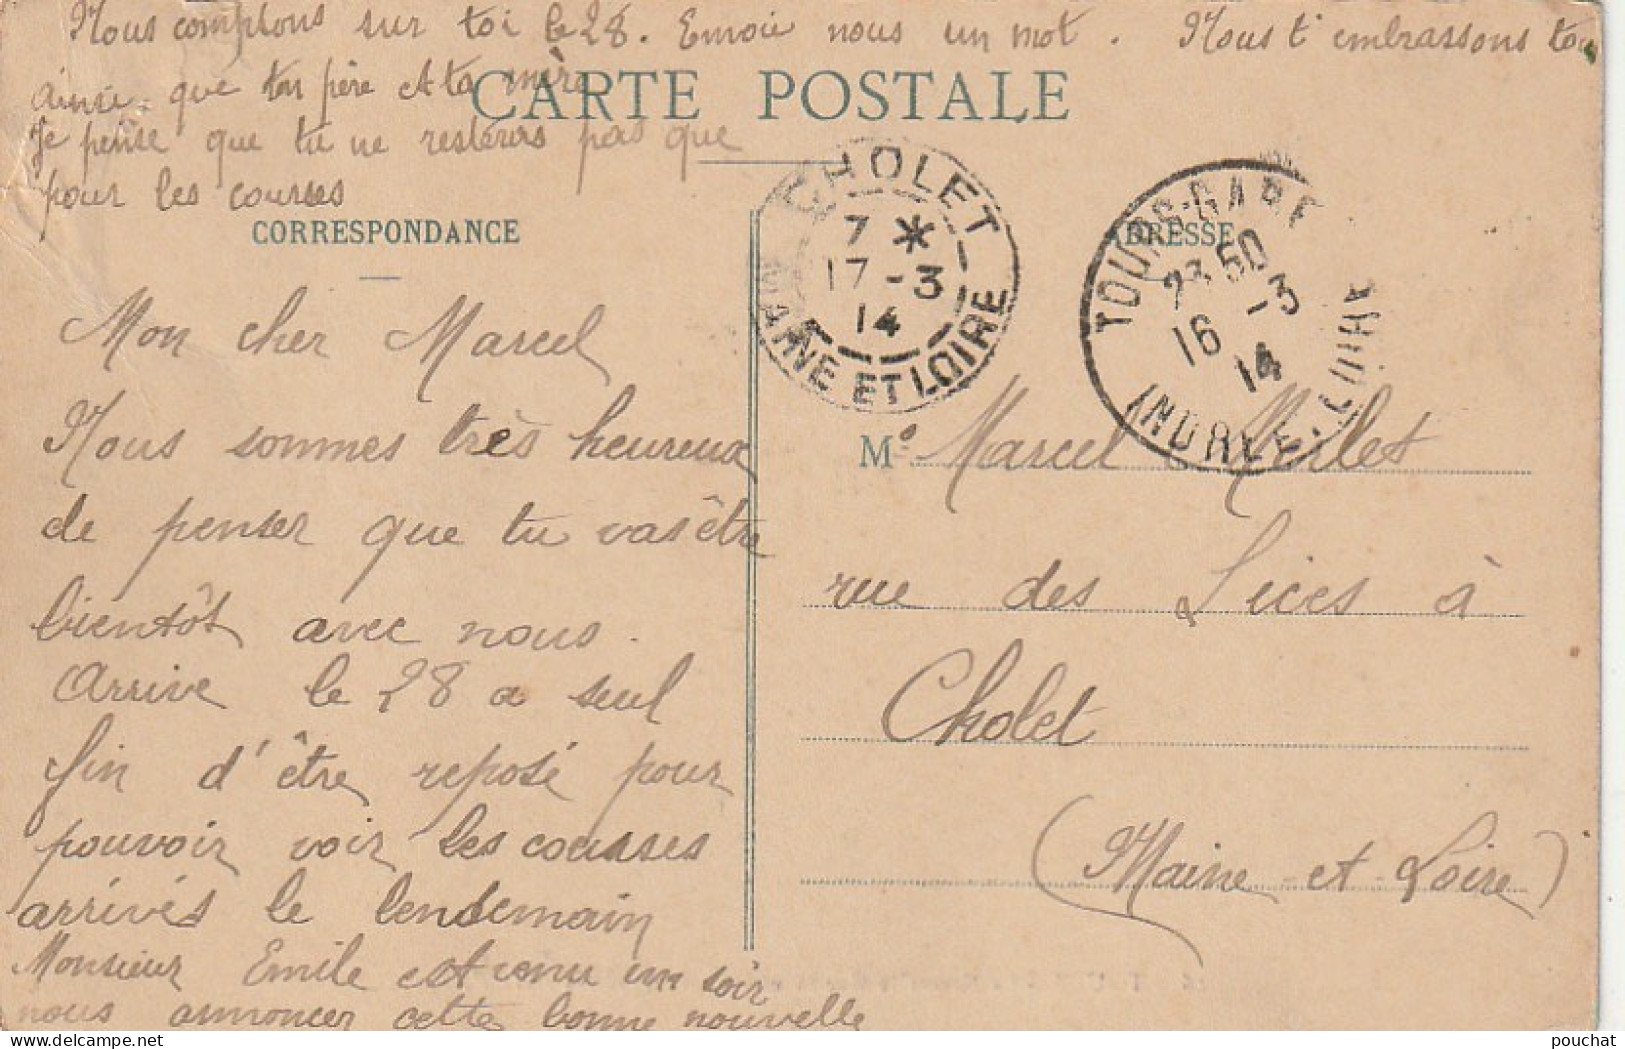 Nous comptons sur toi le 28. Envoie nous un mot. Nous t'embrassons toi
ainsi que ton père et ta mère
CARTE POSTALE
Je pense que tu ne resteras pas que
pour les courses
CORRESPONDANCE
ADRESSE
CHOLET
7 *
17 - 3
14
MAINE ET LOIRE
TOURS-GARE
23 50
16 - 3
14
INDRE-ET-LOIRE
Mon cher Marcel
Nous sommes très heureux
de penser que tu vas être
bientôt avec nous.
Arrive le 28 a seul
fin d'être reposé pour
pouvoir voir les courses
arrivés le lendemain
Monsieur Emile est venu un soir
nous annoncer cette bonne nouvelle
Mr Marcel Merlet
rue des Lices à
Cholet
(Maine et Loire)
pouchat